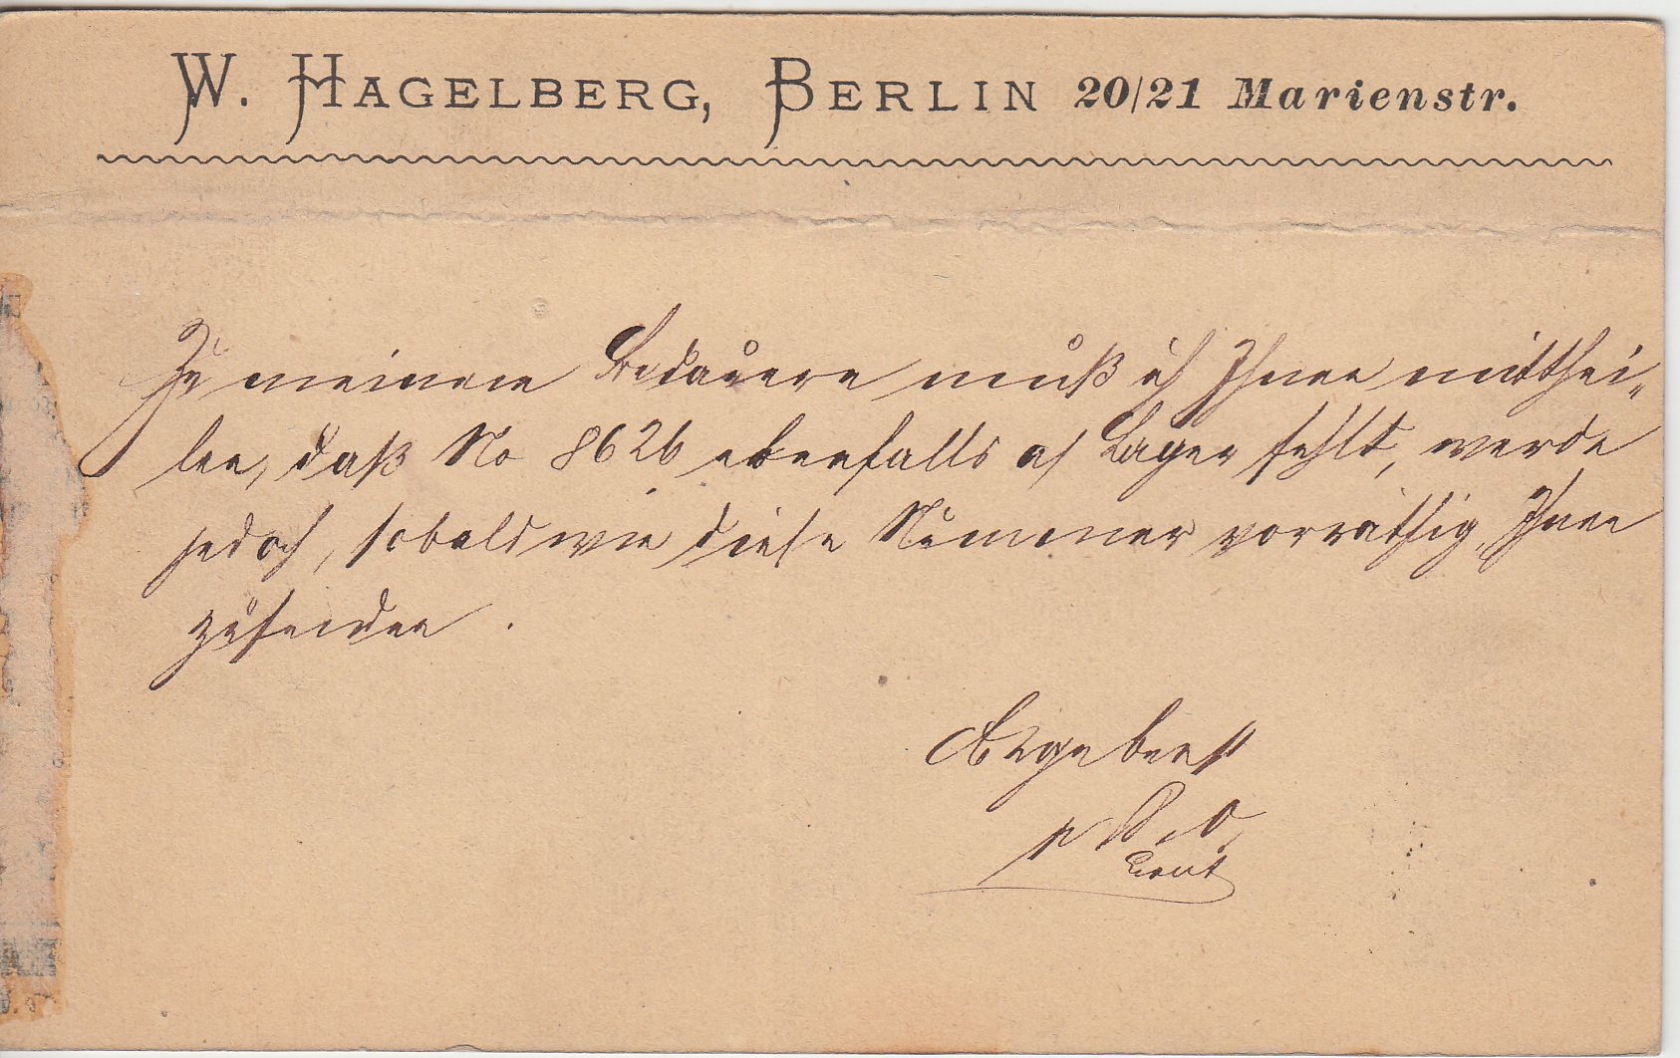 W. HAGELBERG, BERLIN 20/21 Marienstr.
Zu meinem Bedauern muß ich Ihnen mitthei-
len, daß No 8626 ebenfalls a/ Lager fehlt, werde
jedoch, sobald wie diese Nummer vorräthig, Ihnen
zusenden.
Ergebenst